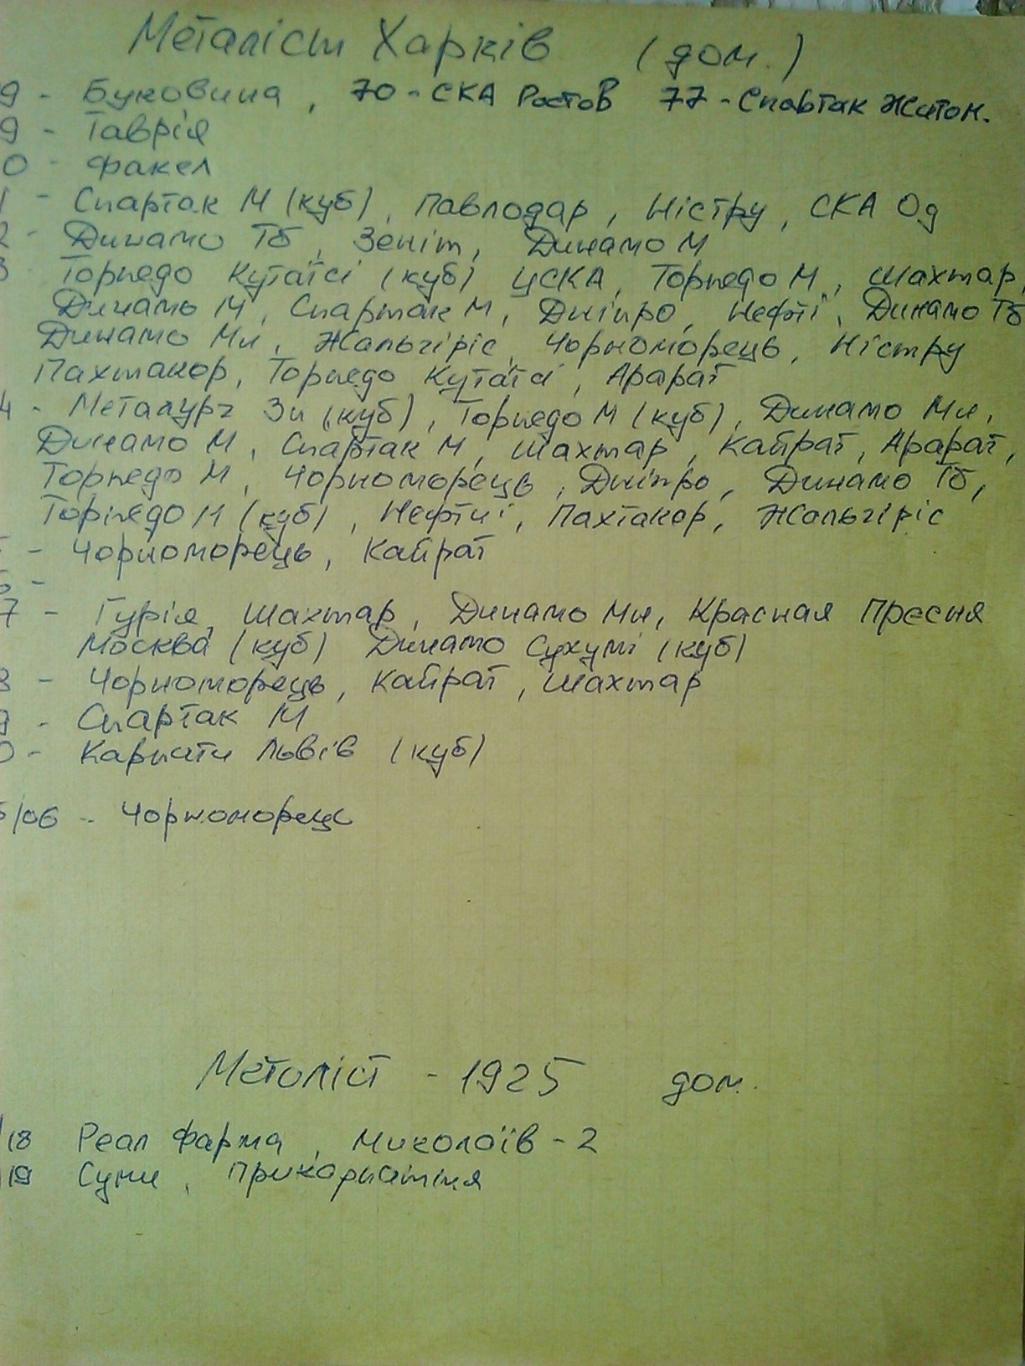 Металіст Харків (дом.)
9 - Буковина, 70 - СКА Ростов 77 - Спартак Житом.
9 - Таврія
0 - Факел
1 - Спартак М (куб), Павлодар, Ністру, СКА Од
2 - Динамо Тб, Зеніт, Динамо М
3 Торпедо Кутаїсі (куб) ЦСКА, Торпедо М, Шахтар,
Динамо М, Спартак М, Дніпро, Нефтчі, Динамо Тб
Динамо Мн, Жальгіріс, Чорноморець, Ністру
Пахтакор, Торпедо Кутаїсі, Арарат
4 - Металург Зп (куб), Торпедо М (куб), Динамо Мн,
Динамо М, Спартак М, Шахтар, Кайрат, Арарат,
Торпедо М, Чорноморець, Дніпро, Динамо Тб,
Торпедо М (куб), Нефтчі, Пахтакор, Жальгіріс
- Чорноморець, Кайрат
6 -
7 - Гурія, Шахтар, Динамо Мн, Красная Пресня
Москва (куб) Динамо Сухумі (куб)
8 - Чорноморець, Кайрат, Шахтар
9 - Спартак М
0 - Карпати Львів (куб)
5/06 - Чорноморець
Металіст - 1925 дом.
/18 Реал Фарма, Миколаїв - 2
/19 Суми, Прикарпаття